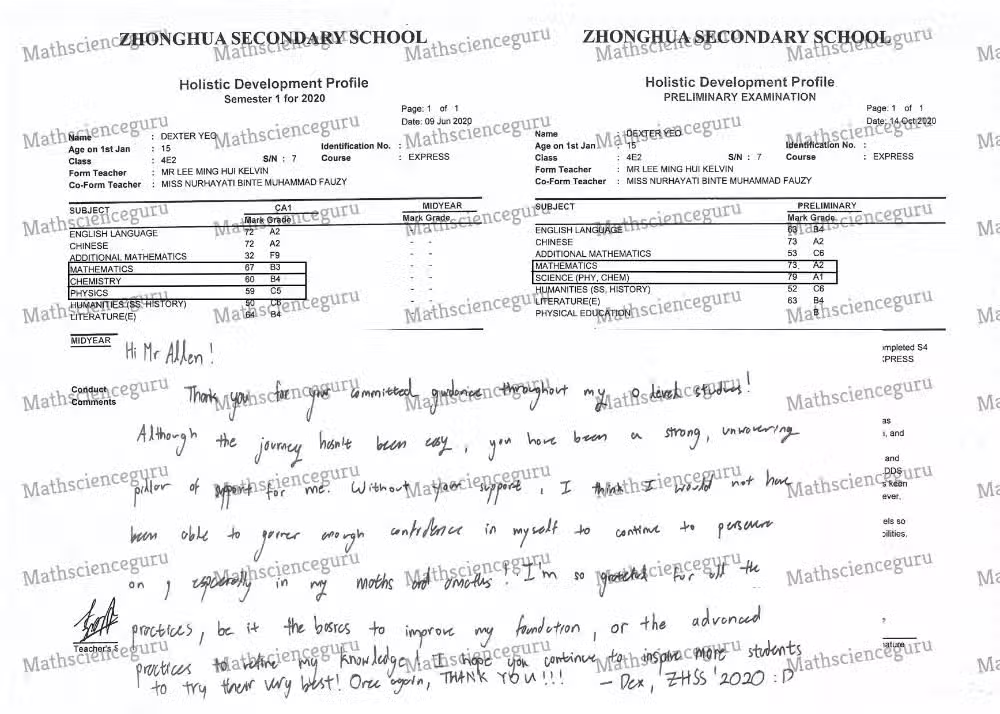 ZHONGHUA SECONDARY SCHOOL
Holistic Development Profile
Semester 1 for 2020
Page: 1 of 1
Date: 09 Jun 2020
Name : DEXTER YEO
Age on 1st Jan : 15 Identification No. :
Class : 4E2 S/N : 7 Course : EXPRESS
Form Teacher : MR LEE MING HUI KELVIN
Co-Form Teacher : MISS NURHAYATI BINTE MUHAMMAD FAUZY
SUBJECT CA1 MIDYEAR
Mark Grade Mark Grade
ENGLISH LANGUAGE 72 A2 - -
CHINESE 72 A2 - -
ADDITIONAL MATHEMATICS 32 F9 - -
MATHEMATICS 67 B3 - -
CHEMISTRY 60 B4 - -
PHYSICS 59 C5 - -
HUMANITIES (SS, HISTORY) 50 C6 - -
LITERATURE(E) 64 B4 - -
MIDYEAR
Conduct
Comments
Teacher's S
ZHONGHUA SECONDARY SCHOOL
Holistic Development Profile
PRELIMINARY EXAMINATION
Page: 1 of 1
Date: 14 Oct 2020
Name : DEXTER YEO
Age on 1st Jan : 15 Identification No. :
Class : 4E2 S/N : 7 Course : EXPRESS
Form Teacher : MR LEE MING HUI KELVIN
Co-Form Teacher : MISS NURHAYATI BINTE MUHAMMAD FAUZY
SUBJECT PRELIMINARY
Mark Grade
ENGLISH LANGUAGE 63 B4
CHINESE 73 A2
ADDITIONAL MATHEMATICS 53 C6
MATHEMATICS 73 A2
SCIENCE (PHY, CHEM) 79 A1
HUMANITIES (SS, HISTORY) 52 C6
LITERATURE(E) 63 B4
PHYSICAL EDUCATION B
mpleted S4
PRESS
as
, and
and
DDS
s keen
ever.
els so
bilities.
ature
Hi Mr Allen!
Thank you for your committed guidance throughout my O level studies!
Although the journey hasn't been easy, you have been a strong, unwavering
pillar of support for me. Without your support, I think I would not have
been able to garner enough confidence in myself to continue to persevere
on, especially in my maths and amaths! I'm so grateful for all the
practices, be it the basics to improve my foundation, or the advanced
practices to refine my knowledge! I hope you continue to inspire more students
to try their very best! Once again, THANK YOU!!! - Dex, ZHSS '2020 :D
Mathscienceguru